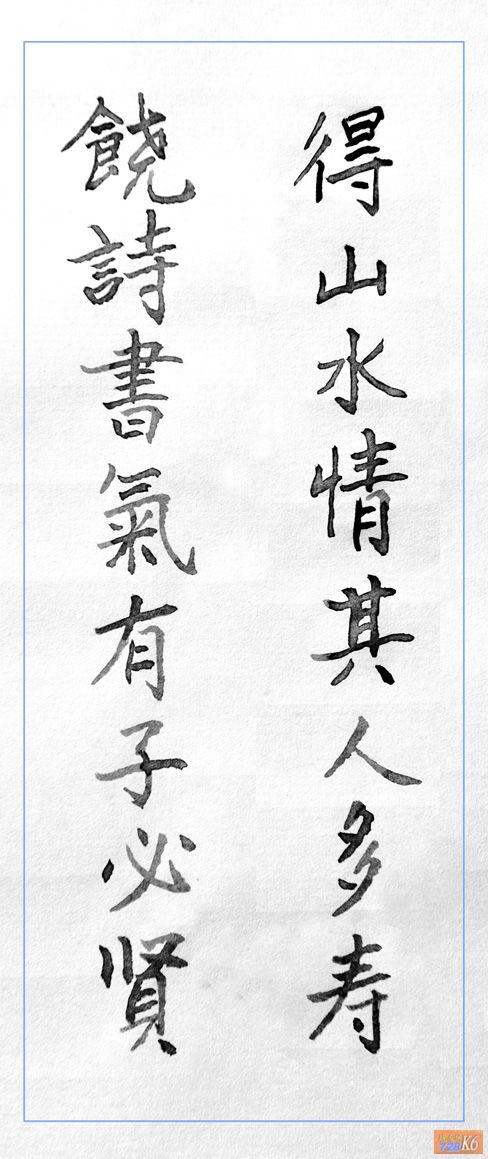 得山水情其人多寿
饒詩書氣有子必賢
728K6